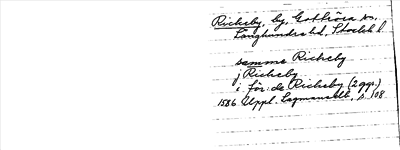 Rickeby, by, Gottröra sn,
Långhundra hd, Stockh l
samme Rickeby
j Rickeby
i för:de Rickeby (2 ggr)
1586 Uppl. Lagmansdb, s. 108